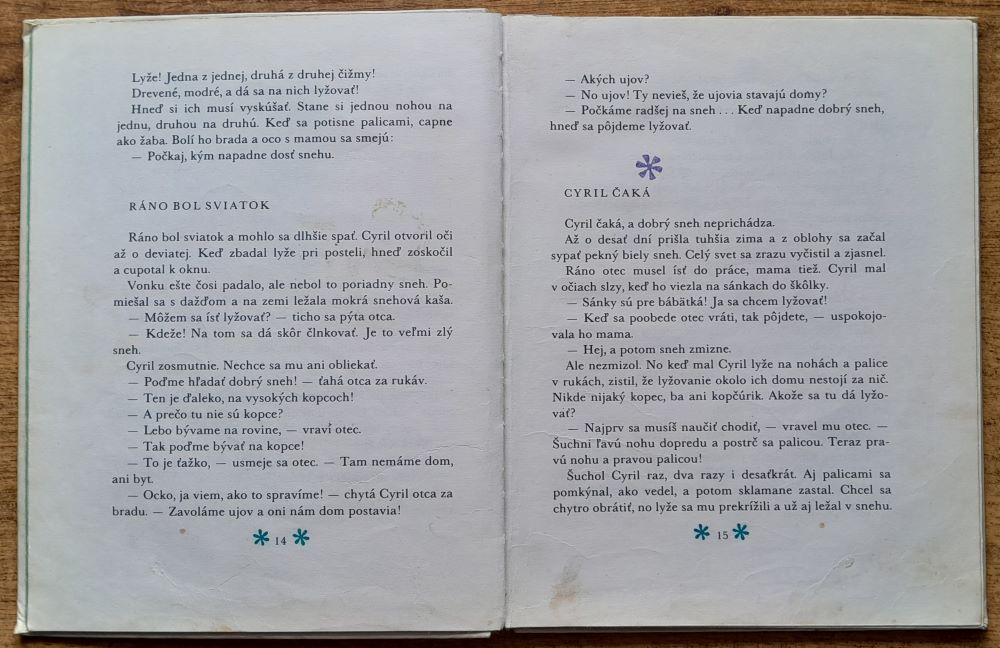 Lyže! Jedna z jednej, druhá z druhej čižmy!
Drevené, modré, a dá sa na nich lyžovať!
Hneď si ich musí vyskúšať. Stane si jednou nohou na
jednu, druhou na druhú. Keď sa potisne palicami, capne
ako žaba. Bolí ho brada a oco s mamou sa smejú:
— Počkaj, kým napadne dosť snehu.
RÁNO BOL SVIATOK
Ráno bol sviatok a mohlo sa dlhšie spať. Cyril otvoril oči
až o deviatej. Keď zbadal lyže pri posteli, hneď zoskočil
a cupotal k oknu.
Vonku ešte čosi padalo, ale nebol to poriadny sneh. Po-
miešal sa s dažďom a na zemi ležala mokrá snehová kaša.
— Môžem sa ísť lyžovať? — ticho sa pýta otca.
— Kdeže! Na tom sa dá skôr člnkovať. Je to veľmi zlý
sneh.
Cyril zosmutnie. Nechce sa mu ani obliekať.
— Poďme hľadať dobrý sneh! — ťahá otca za rukáv.
— Ten je ďaleko, na vysokých kopcoch!
— A prečo tu nie sú kopce?
— Lebo bývame na rovine, — vraví otec.
— Tak poďme bývať na kopce!
— To je ťažko, — usmeje sa otec. — Tam nemáme dom,
ani byt.
— Ocko, ja viem, ako to spravíme! — chytá Cyril otca za
bradu. — Zavoláme ujov a oni nám dom postavia!
14
— Akých ujov?
— No ujov! Ty nevieš, že ujovia stavajú domy?
— Počkáme radšej na sneh ... Keď napadne dobrý sneh,
hneď sa pôjdeme lyžovať.
CYRIL ČAKÁ
Cyril čaká, a dobrý sneh neprichádza.
Až o desať dní prišla tuhšia zima a z oblohy sa začal
sypať pekný biely sneh. Celý svet sa zrazu vyčistil a zjasnel.
Ráno otec musel ísť do práce, mama tiež. Cyril mal
v očiach slzy, keď ho viezla na sánkach do škôlky.
— Sánky sú pre bábätká! Ja sa chcem lyžovať!
— Keď sa poobede otec vráti, tak pôjdete, — uspokojo-
vala ho mama.
— Hej, a potom sneh zmizne.
Ale nezmizol. No keď mal Cyril lyže na nohách a palice
v rukách, zistil, že lyžovanie okolo ich domu nestojí za nič.
Nikde nijaký kopec, ba ani kopčúrik. Akože sa tu dá lyžo-
vať?
— Najprv sa musíš naučiť chodiť, — vravel mu otec. —
Šuchni ľavú nohu dopredu a postrč sa palicou. Teraz pra-
vú nohu a pravou palicou!
Šuchol Cyril raz, dva razy i desaťkrát. Aj palicami sa
pomkýnal, ako vedel, a potom sklamane zastal. Chcel sa
chytro obrátiť, no lyže sa mu prekrížili a už aj ležal v snehu.
15